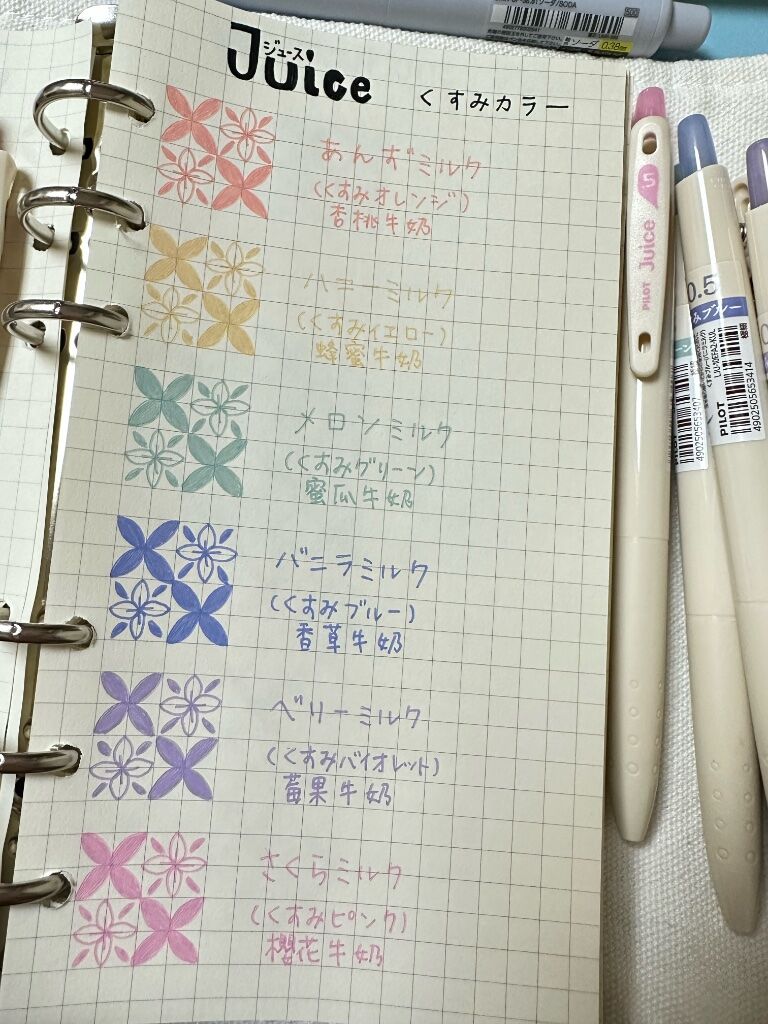 ジュース
Juice くすみカラー
あんずミルク
(くすみオレンジ)
杏桃牛奶
ハニーミルク
(くすみイエロー)
蜂蜜牛奶
メロンミルク
(くすみグリーン)
蜜瓜牛奶
バニラミルク
(くすみブルー)
香草牛奶
ベリーミルク
(くすみバイオレット)
莓果牛奶
さくらミルク
(くすみピンク)
櫻花牛奶
ソーダ/SODA
ソーダ 0.38
PILOT Juice
0.5
みブルー
PILOT
4902505653414